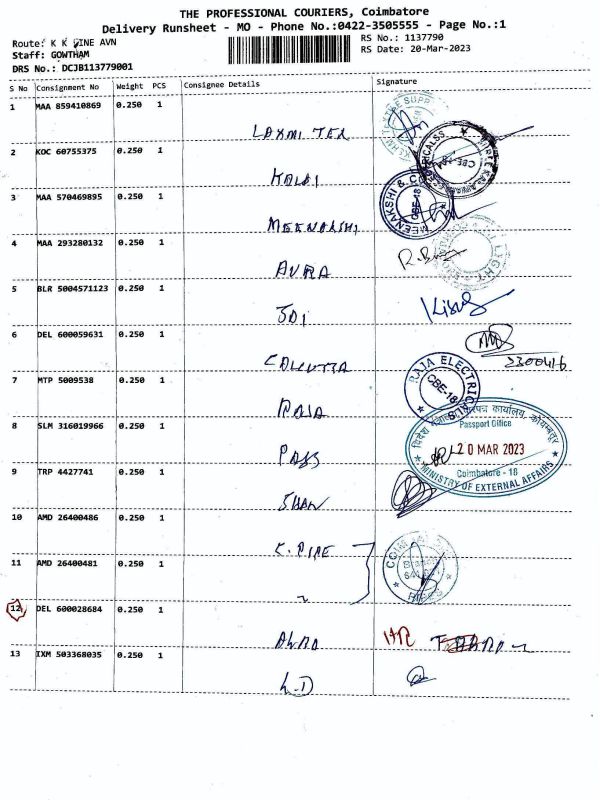 THE PROFESSIONAL COURIERS, Coimbatore
Delivery Runsheet - MO - Phone No.:0422-3505555 - Page No.:1
Route: K K PINE AVN
Staff: GOWTHAM
DRS No.: DCJB113779001
RS No.: 1137790
RS Date: 20-Mar-2023
S No Consignment No Weight PCS Consignee Details Signature
1 MAA 859410869 0.250 1
LAXMI TEX
2 KOC 60755375 0.250 1
KALAI
3 MAA 570469895 0.250 1
MEENAKSHI
MEENAKSHI & CO
CBE-18
4 MAA 293280132 0.250 1
AURA
5 BLR 5004571123 0.250 1
JOI
6 DEL 600059631 0.250 1
CALCUTTA
7 MTP 5009538 0.250 1
RAJA
RAJA ELECTRICALS
CBE-18
8 SLM 316019966 0.250 1
PASS
Passport Office
20 MAR 2023
Coimbatore - 18
MINISTRY OF EXTERNAL AFFAIRS
9 TRP 4427741 0.250 1
SHAN
10 AMD 26400486 0.250 1
C. PIPE
11 AMD 26400481 0.250 1
12 DEL 600028684 0.250 1
13 IXM 503368035 0.250 1